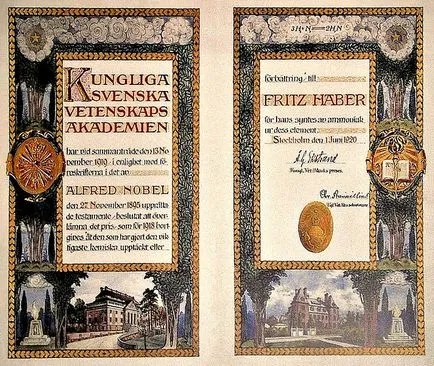 KUNGLIGA
SVENSKA
VETENSKAPS
AKADEMIEN
har vid sammanträde den 13 No-
vember 1919 i enlighet med fö-
reskrifterna i det av
ALFRED NOBEL
den 27 November 1895 upprätta-
de testamente beslutat att över-
lämna det pris som för 1918 bort-
gives åt den som har gjort den vik-
tigaste kemiska upptäckt eller
3H+N=2H₃N
förbättring till
FRITZ HABER
för hans syntes av ammoniak
ur dess element
Stockholm den 1 Juni 1920